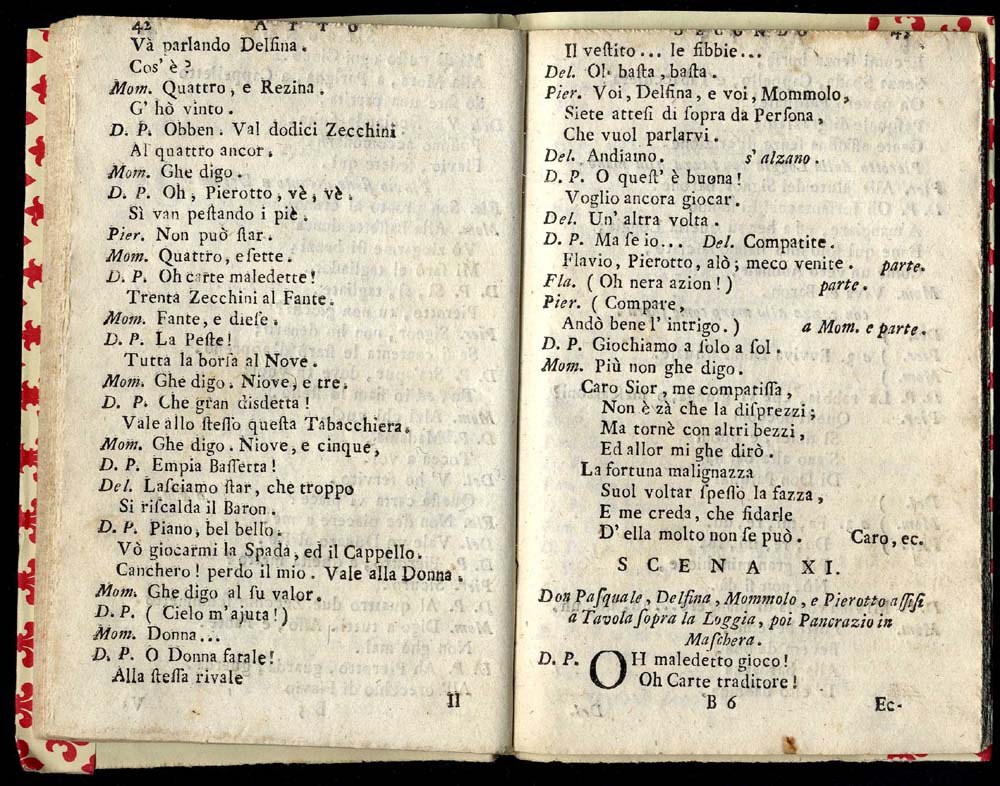 42 ATTO
Và parlando Delfina.
Cos' è?
Mom. Quattro, e Rezina.
G' hò vinto.
D. P. Obben. Val dodici Zecchini
Al quattro ancor.
Mom. Ghe digo.
D. P. Oh, Pierotto, vè, vè.
Sì van peſtando i piè.
Pier. Non può ſtar.
Mom. Quattro, e ſette.
D. P. Oh carte maledette!
Trenta Zecchini al Fante.
Mom. Fante, e dieſe.
D. P. La Peſte!
Tutta la borſa al Nove.
Mom. Ghe digo. Niove, e tre.
D. P. Che gran disdetta!
Vale allo ſteſſo queſta Tabacchiera.
Mom. Ghe digo. Niove, e cinque,
D. P. Empia Baſſetta!
Del. Laſciamo ſtar, che troppo
Si riſcalda il Baron.
D. P. Piano, bel bello.
Vò giocarmi la Spada, ed il Cappello.
Canchero! perdo il mio. Vale alla Donna.
Mom. Ghe digo al ſu valor.
D. P. ( Cielo m'ajuta!)
Mom. Donna...
D. P. O Donna fatale!
Alla ſteſſa rivale
Il
SECONDO
Il veſtito... le fibbie...
Del. Ol- baſta, baſta.
Pier. Voi, Delfina, e voi, Mommolo,
Siete atteſi di ſopra da Perſona,
Che vuol parlarvi.
Del. Andiamo. s' alzano.
D. P. O queſt' è buona!
Voglio ancora giocar.
Del. Un' altra volta.
D. P. Ma ſe io... Del. Compatite.
Flavio, Pierotto, alò; meco venite. parte.
Fla. ( Oh nera azion!) parte.
Pier. ( Compare,
Andò bene l' intrigo.) a Mom. e parte.
D. P. Giochiamo a ſolo a ſol.
Mom. Più non ghe digo.
Caro Sior, me compatiſſa,
Non è zà che la diſprezzi;
Ma tornè con altri bezzi,
Ed allor mi ghe dirò.
La fortuna malignazza
Suol voltar ſpeſſo la fazza,
E me creda, che fidarſe
D' ella molto non ſe può. Caro, ec.
SCENA XI.
Don Paſquale, Delfina, Mommolo, e Pierotto aſſiſi
a Tavola ſopra la Loggia, poi Pancrazio in
Maſchera.
D. P. OH maledetto gioco!
Oh Carte traditore!
B 6 Ec-